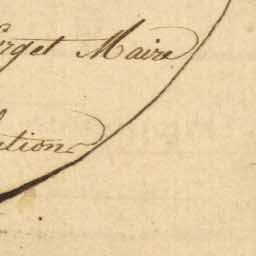 rget Maire
ution